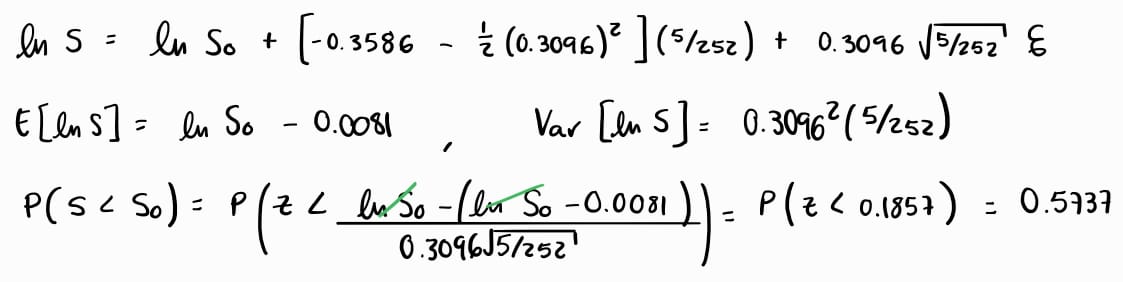 ln S = ln S₀ + [-0.3586 - ½ (0.3096)² ](5/252) + 0.3096 √5/252 ε
E[ln S] = ln S₀ - 0.0081 , Var [ln S] = 0.3096²(5/252)
P(S < S₀) = P(z < (ln S₀ - (ln S₀ - 0.0081)) / (0.3096√5/252)) = P(z < 0.1857) = 0.5737